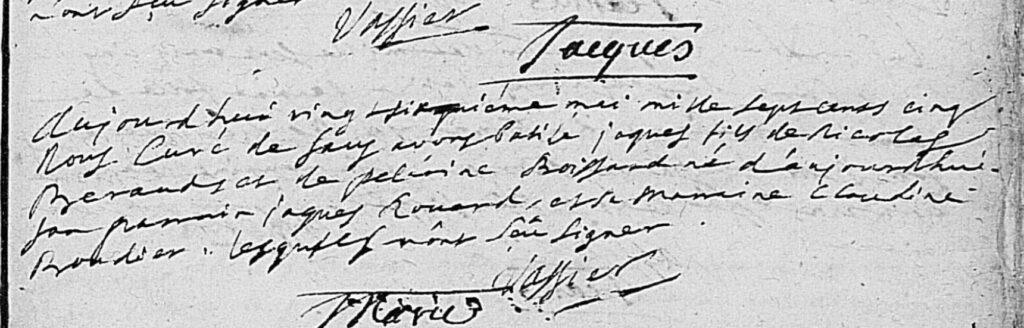 n'ont sçu signer
Vassier
Jacques
Aujourdhui vingt sixquiéme mai mille sept cents cinq
Nous Curé de Saus avons batisé jaques fils de Nicolas
Berauds et de pelérine Boissard né d'aujourdhui
son parrain jaques Rouard, et sa Marraine Claudine
Brondier. lesquels n'ont sçu signer.
Vassier
Marie